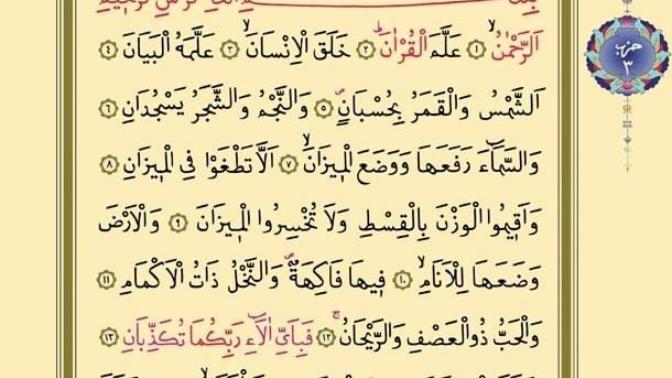 اَلرَّحْمٰنُۙ ﴿١﴾ عَلَّمَ الْقُرْاٰنَۜ ﴿٢﴾ خَلَقَ الْاِنْسَانَۙ ﴿٣﴾ عَلَّمَهُ الْبَيَانَ ﴿٤﴾
اَلشَّمْسُ وَالْقَمَرُ بِحُسْبَانٍۖ ﴿٥﴾ وَالنَّجْمُ وَالشَّجَرُ يَسْجُدَانِ ﴿٦﴾
وَالسَّمَٓاءَ رَفَعَهَا وَوَضَعَ الْم۪يزَانَۙ ﴿٧﴾ اَلَّا تَطْغَوْا فِي الْم۪يزَانِ ﴿٨﴾
وَاَق۪يمُوا الْوَزْنَ بِالْقِسْطِ وَلَا تُخْسِرُوا الْم۪يزَانَ ﴿٩﴾ وَالْاَرْضَ
وَضَعَهَا لِلْاَنَامِۙ ﴿١٠﴾ ف۪يهَا فَاكِهَةٌۖ وَالنَّخْلُ ذَاتُ الْاَكْمَامِ ﴿١١﴾
وَالْحَبُّ ذُوالْعَصْفِ وَالرَّيْحَانُۚ ﴿١٢﴾ فَبِاَيِّ اٰلَٓاءِ رَبِّكُمَا تُكَذِّبَانِ ﴿١٣﴾
حزب
٣